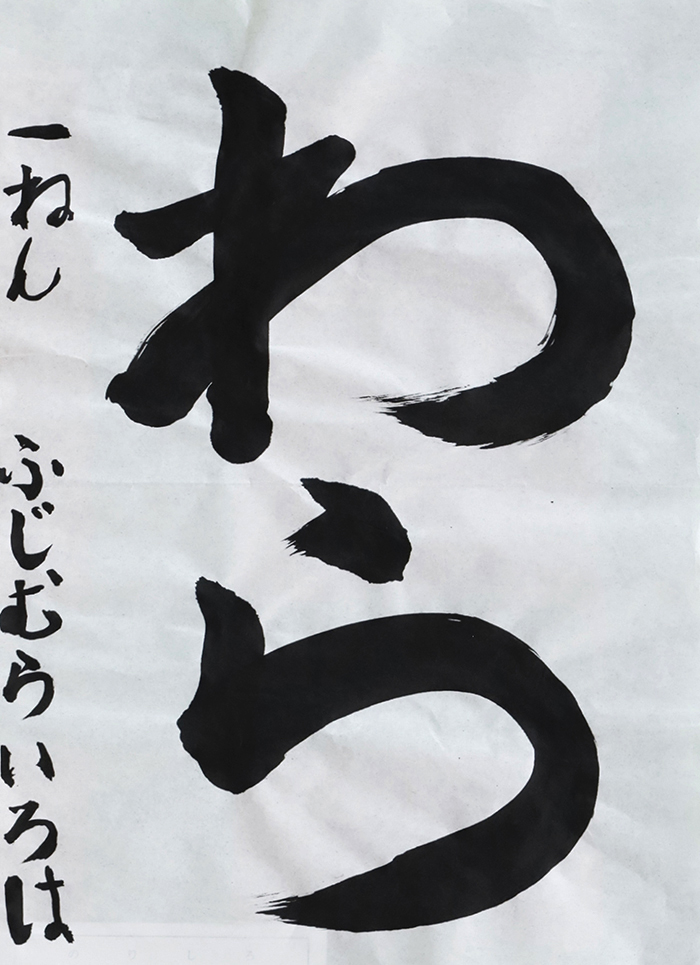 わら
一ねん ふじむらいろは